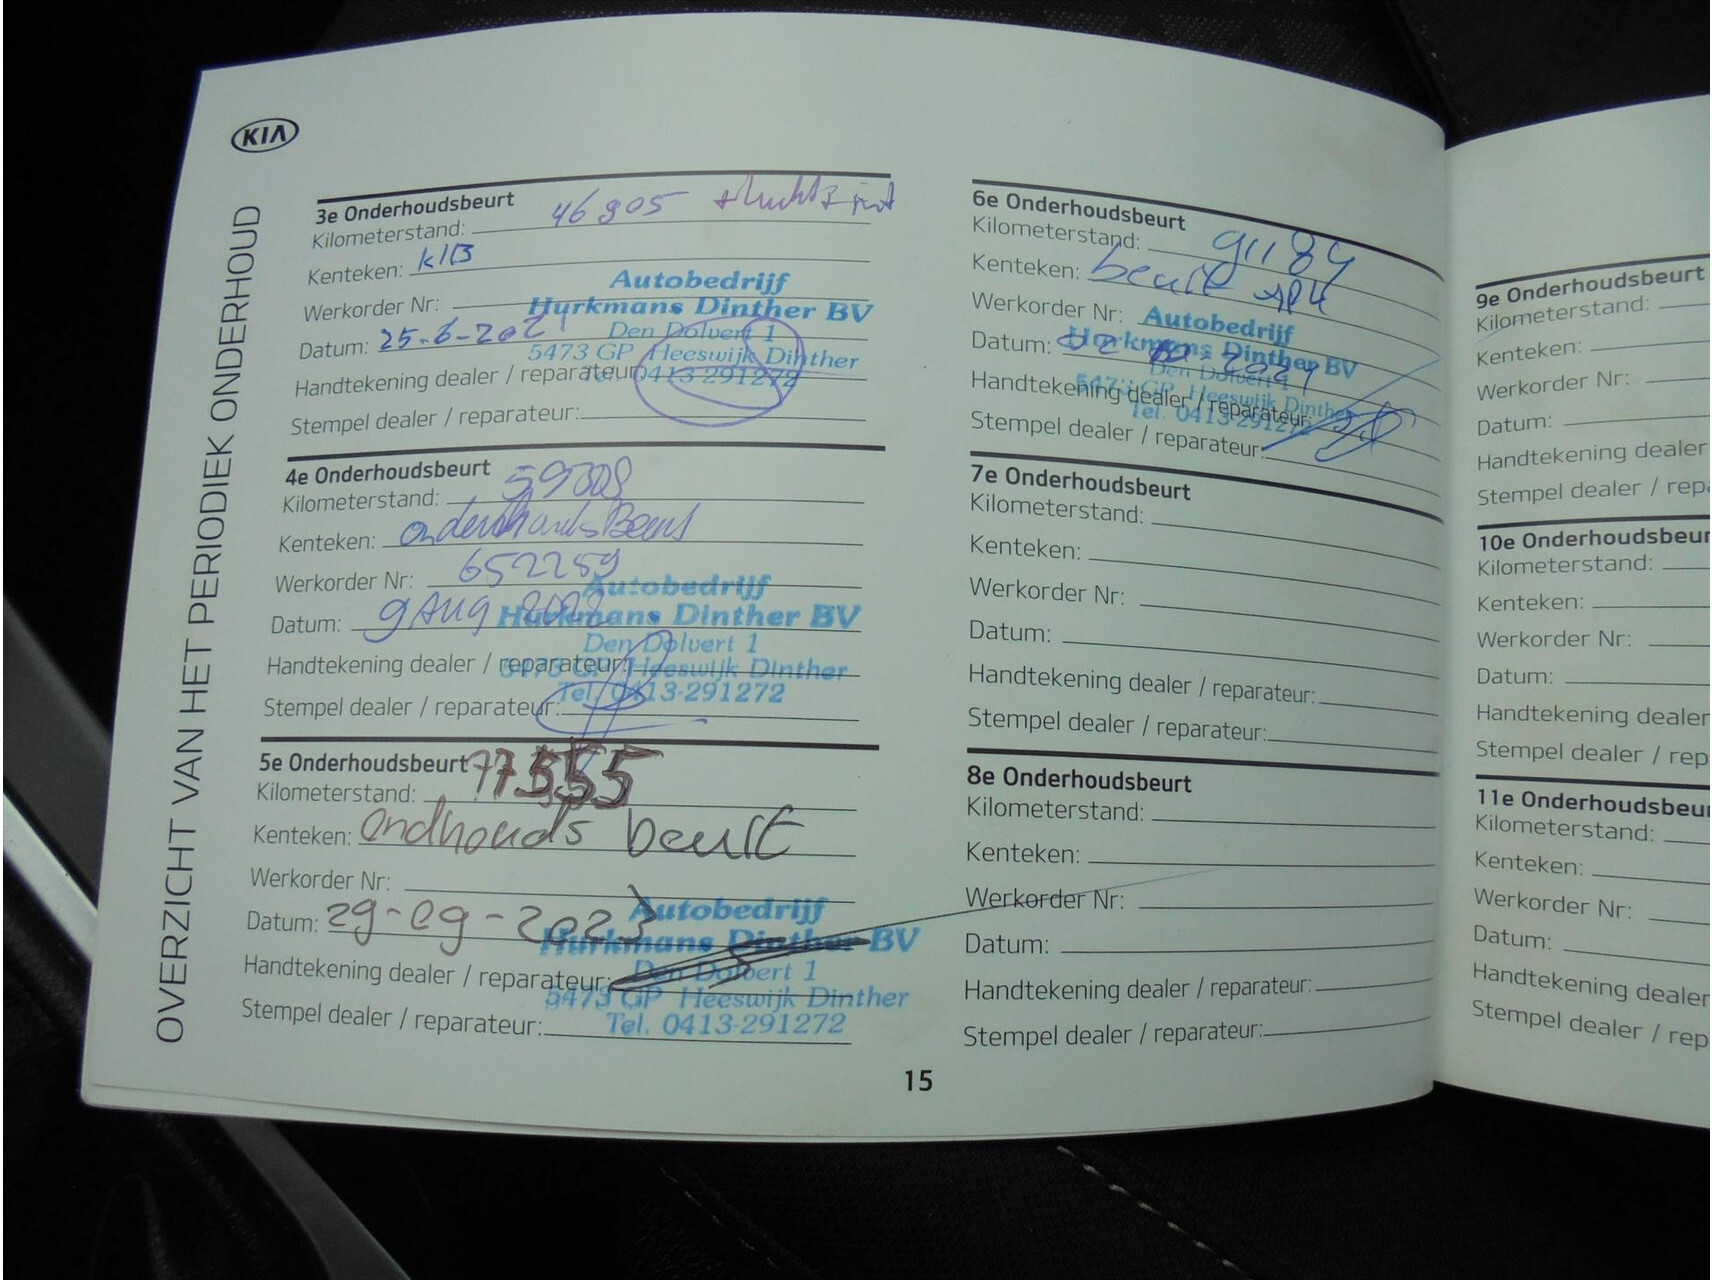 KIA
OVERZICHT VAN HET PERIODIEK ONDERHOUD
3e Onderhoudsbeurt
Kilometerstand: 46905
Kenteken:
Werkorder Nr:
Datum: 25-6-2021
Handtekening dealer / reparateur:
Stempel dealer / reparateur:
Autobedrijf
Hurkmans Dinther BV
Den Dolvert 1
5473 GP Heeswijk Dinther
Tel. 0413-291272
4e Onderhoudsbeurt
Kilometerstand:
Kenteken: onderhoudsBeurt
Werkorder Nr: 652259
Datum: 9 AUG 2022
Handtekening dealer / reparateur:
Stempel dealer / reparateur:
Autobedrijf
Hurkmans Dinther BV
Den Dolvert 1
5473 GP Heeswijk Dinther
Tel. 0413-291272
5e Onderhoudsbeurt
Kilometerstand: 77555
Kenteken: ondhouds beurt
Werkorder Nr:
Datum: 29-09-2023
Handtekening dealer / reparateur:
Stempel dealer / reparateur:
Autobedrijf
Hurkmans Dinther BV
Den Dolvert 1
5473 GP Heeswijk Dinther
Tel. 0413-291272
6e Onderhoudsbeurt
Kilometerstand: 91184
Kenteken: beurt
Werkorder Nr:
Datum: 02-10-2024
Handtekening dealer / reparateur:
Stempel dealer / reparateur:
Autobedrijf
Hurkmans Dinther BV
Den Dolvert 1
5473 GP Heeswijk Dinther
Tel. 0413-291272
7e Onderhoudsbeurt
Kilometerstand:
Kenteken:
Werkorder Nr:
Datum:
Handtekening dealer / reparateur:
Stempel dealer / reparateur:
8e Onderhoudsbeurt
Kilometerstand:
Kenteken:
Werkorder Nr:
Datum:
Handtekening dealer / reparateur:
Stempel dealer / reparateur:
15
9e Onderhoudsbeurt
Kilometerstand:
Kenteken:
Werkorder Nr:
Datum:
Handtekening dealer
Stempel dealer / rep
10e Onderhoudsbeur
Kilometerstand:
Kenteken:
Werkorder Nr:
Datum:
Handtekening dealer
Stempel dealer / rep
11e Onderhoudsbeu
Kilometerstand:
Kenteken:
Werkorder Nr:
Datum:
Handtekening dealer
Stempel dealer / rep